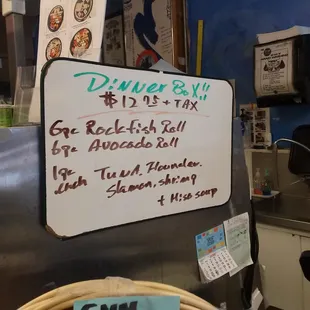 Dinner Box!!
$12.95 + TAX
6pc Rockfish Roll
6pc Avocado Roll
1pc each Tuna, Flounder.
Slamon, shrimp
+ Miso soup